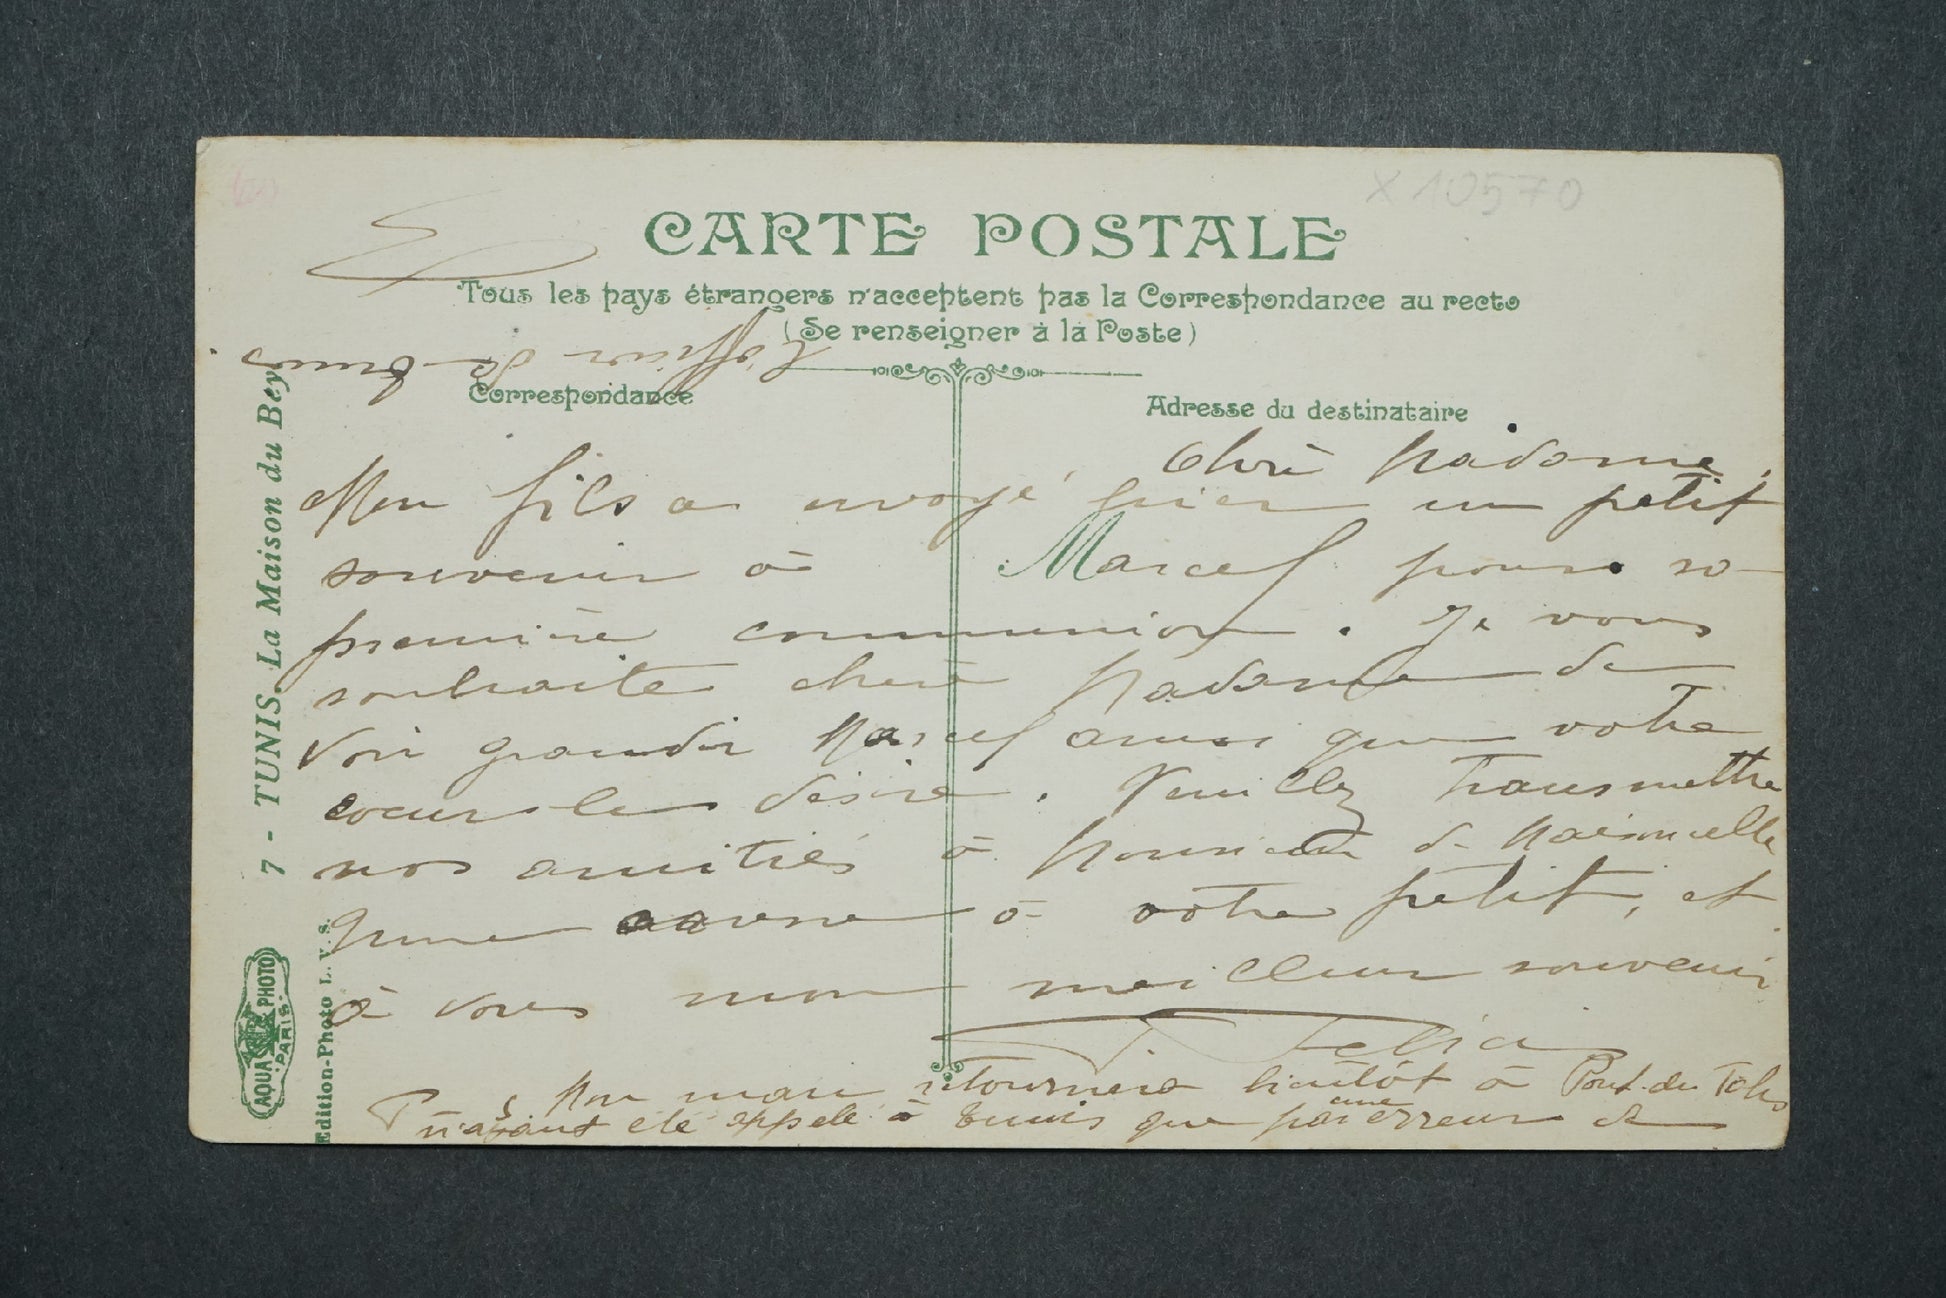 X 10570
CARTE POSTALE
Tous les pays étrangers n'acceptent pas la Correspondance au recto
(Se renseigner à la Poste)
Correspondance
Adresse du destinataire
Chère Madame,
Mon fils a envoyé hier un petit
souvenir à Marcel pour sa
première communion. Je vous
souhaite chère Madame de
voir grandir Marcel ainsi que votre
coeur le désire. Veuillez transmettre
nos amitiés à Monsieur de Maisoncelle
à votre petit, et
à vous mon meilleur souvenir
Félia
P.S. Mon mari retournera bientôt à Pont-du-Fahs
n'ayant été appelé à Tunis que par une erreur de
l'officier de Tunis
7 - TUNIS. La Maison du Bey
AQUA PHOTO
PARIS
Edition-Photo L. V. S.